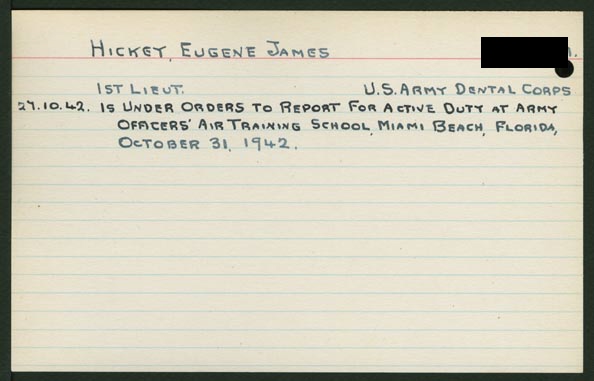 HICKEY, EUGENE JAMES
1ST LIEUT. U.S. ARMY DENTAL CORPS
27.10.42. IS UNDER ORDERS TO REPORT FOR ACTIVE DUTY AT ARMY
OFFICERS' AIR TRAINING SCHOOL, MIAMI BEACH, FLORIDA,
OCTOBER 31, 1942.